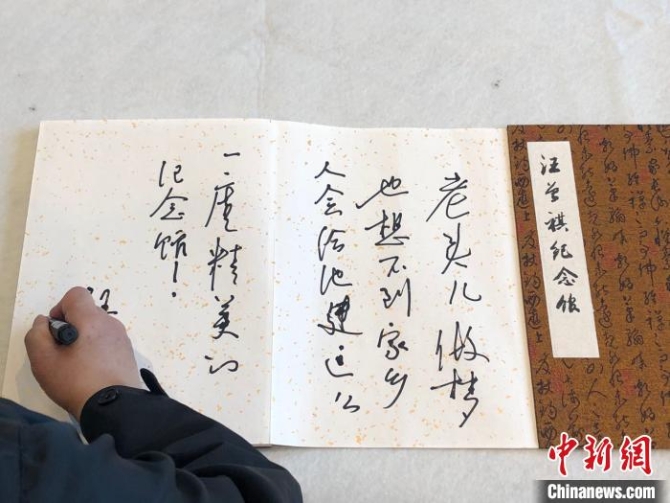 汪曾祺纪念馆
老头儿做梦
也想不到家乡
人会给他建这么
一座精美的
纪念馆！
汪
中新网
Chinanews.com